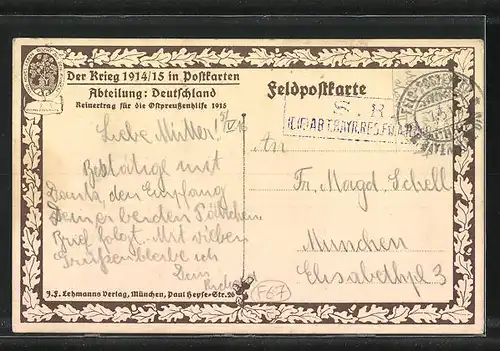 Der Krieg 1914/15 in Postkarten
Abteilung: Deutschland
Reinertrag für die Ostpreußenhilfe 1915
Feldpostkarte
S. B.
Liebe Mutter!
Bestätige mit
Dank den Empfang
Deiner beiden Päckchen
Brief folgt. Mit vielen
Grüßen bleibe ich
Dein
An
Fr. Magd. Schell
München
Elisabethpl. 3
J. F. Lehmanns Verlag, München, Paul Heyse-Str. 26
F67